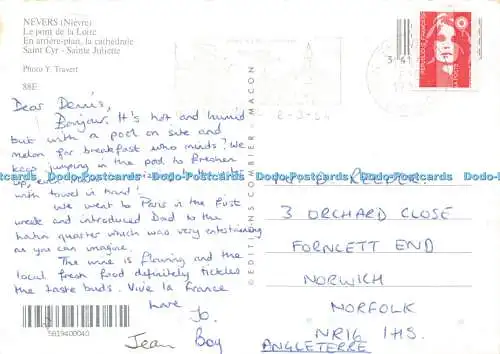 NEVERS (Nièvre)
Le pont de la Loire
En arrière-plan, la cathédrale
Saint Cyr - Sainte Juliette
Photo Y. Travert
88E
Dear Denis,
Bonjour. It's hot and humid
but with a pool on site and
melon for breakfast who minds? We
keep jumping in the pool to freshen
up, even
with towel in hand!
We went to Paris in the first
week and introduced Dad to the
Latin quarter which was very entertaining
as you can imagine.
The wine is flowing and the
local fresh food definitely tickles
the taste buds. Vive la France
Love
Jo.
Jean Boy
5619400040
© EDITIONS COMBIER - MACON
REPUBLIQUE FRANÇAISE
LA POSTE
REEDER
3 ORCHARD CLOSE
FORNCETT END
NORWICH
NORFOLK
NR16 1HS.
ANGLETERRE
Dodo-Postcards Dodo-Postcards Dodo-Postcards Dodo-Postcards Dodo-Postcards